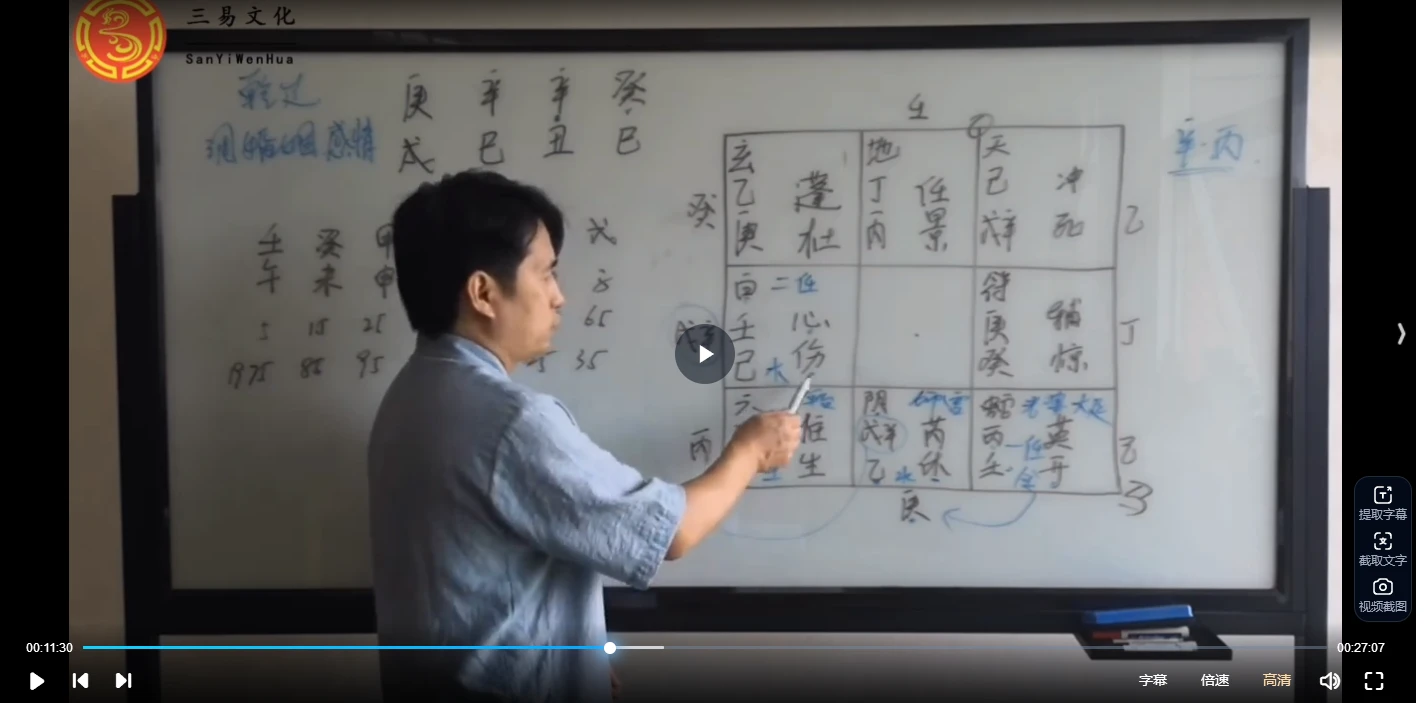 三易文化
SanYiWenHua
庚 辛 辛 癸
戌 巳 丑 巳
问婚姻感情
壬 癸 甲 戊
午 未 申 子
5 15 25 65
1975 85 95 35
壬
辛 丙
玄 地 天
乙 蓬 丁 任 己 冲
庚 杜 丙 景 戊辛 死
癸 乙
白 二任 符
壬 心 庚 辅
己 木 伤 癸 惊
丁
六 阴 蛇
任 戊辛 芮 丙 一任 英
生 乙 水 休 壬 金 开
丙
00:11:30
00:27:07
字幕 倍速 高清
提取字幕
截取文字
视频截图